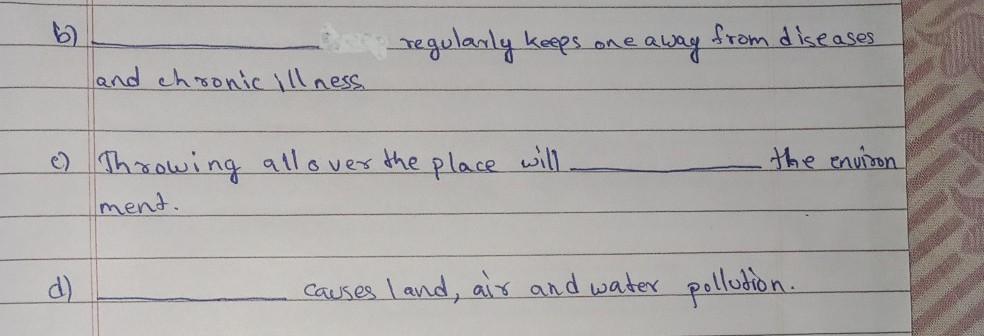 b) ____________ regularly keeps one away from diseases
and chronic illness.
c) Throwing all over the place will ____________ the environ
ment.
d) ____________ causes land, air and water pollution.